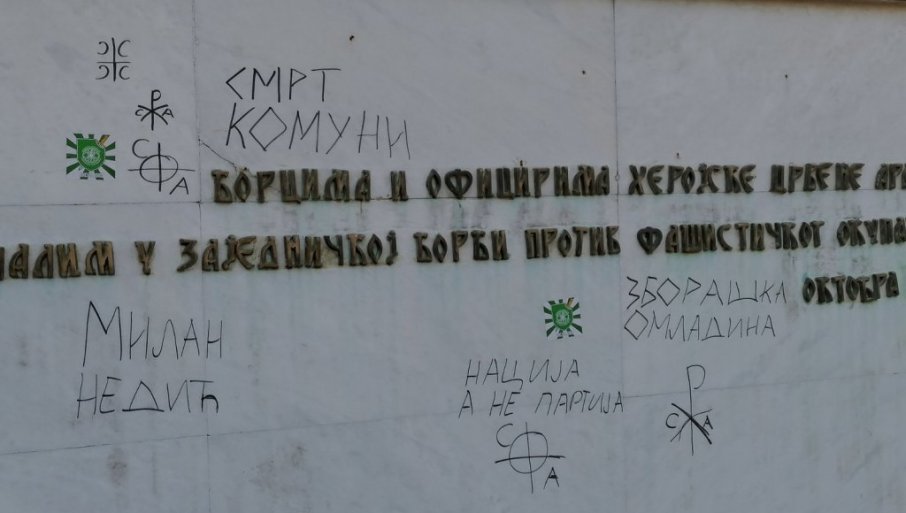 СМРТ
КОМУНИ
Р
С А
С
А
БОРЦИМА И ОФИЦИРИМА ХЕРОЈСКЕ ЦРВЕНЕ АР
ПАЛИМ У ЗАЈЕДНИЧКОЈ БОРБИ ПРОТИВ ФАШИСТИЧКОГ ОКУПА
ОКТОБРА
ЗБОРАШКА
ОМЛАДИНА
МИЛАН
НЕДИЋ
НАЦИЈА
А НЕ ПАРТИЈА
Р
С А
С
А